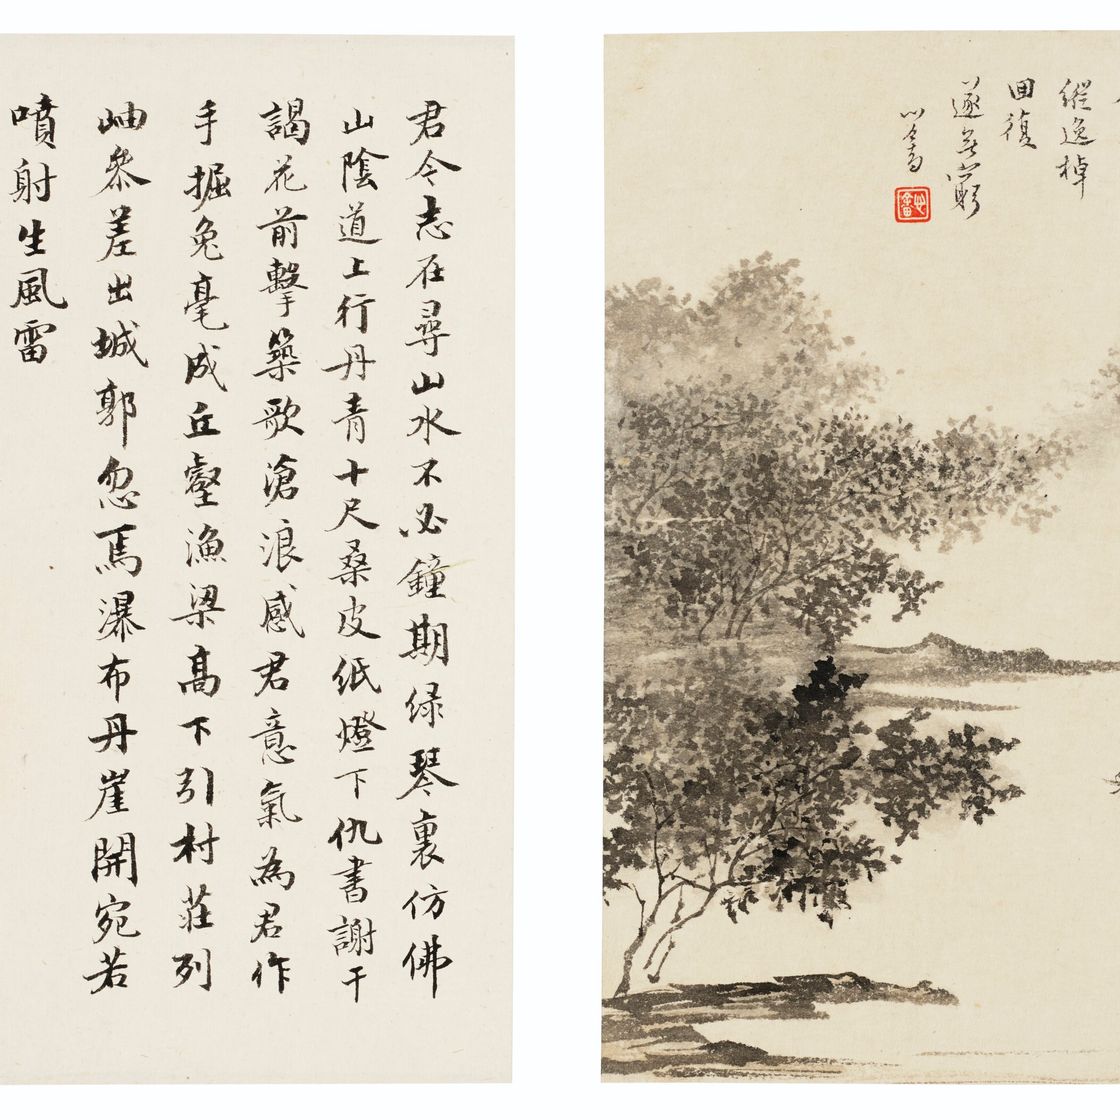 縱逸棹
囬復
遂無窮
心畬
心畬
君今志在尋山水不必鐘期緑琴裏仿佛
山陰道上行丹青十尺桑皮紙燈下仇書謝干
謁花前擊築歌滄浪感君意氣為君作
手握兔毫成丘壑漁梁高下引村莊列
岫參差出城郭忽焉瀑布丹崖開宛若
噴射生風雷